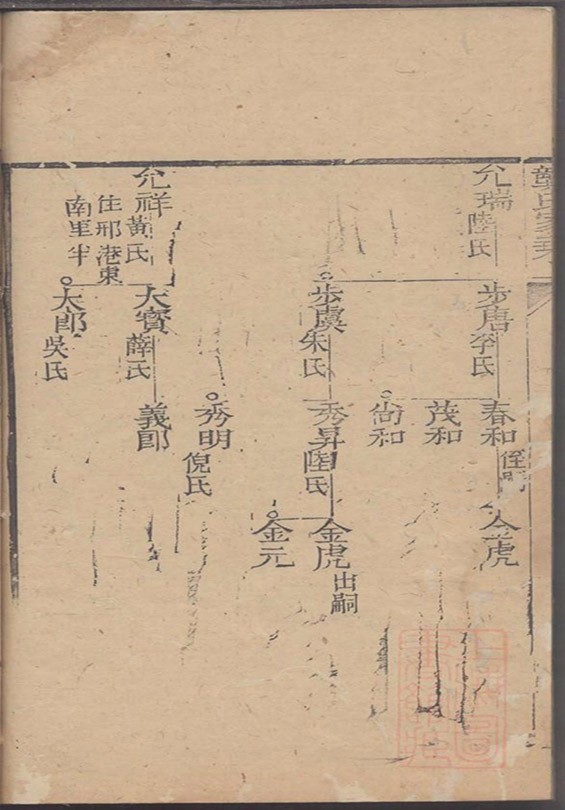 允瑞陸氏
步唐李氏
春和侄嗣
金虎
茂和
尙和
步虞朱氏
秀昇陸氏
金虎出嗣
金元
秀明倪氏
允祥黃氏
住邢港東
南里半
大寶薛氏
義郎
大郎吳氏